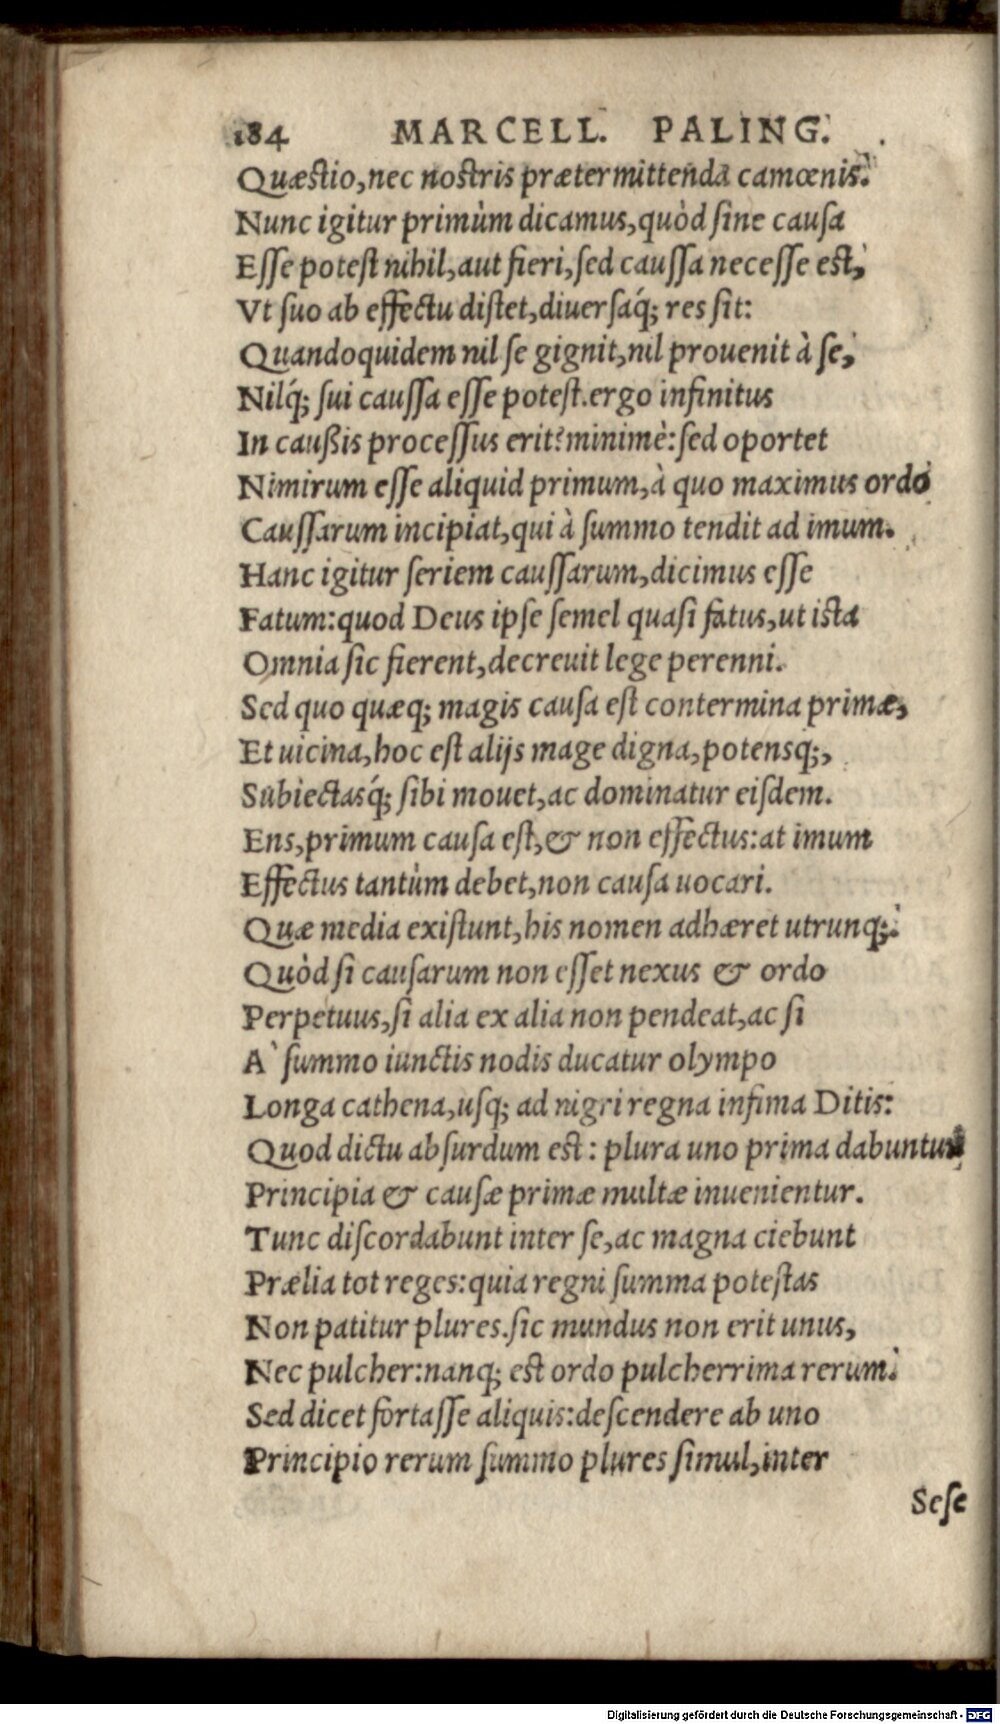 184 MARCELL. PALING.
Quæstio, nec nostris prætermittenda camœnis.
Nunc igitur primùm dicamus, quòd sine causa
Esse potest nihil, aut fieri, sed caussa necesse est,
Vt suo ab effectu distet, diuersaq́; res sit:
Quandoquidem nil se gignit, nil prouenit à se,
Nilq́; sui caussa esse potest. ergo infinitus
In caußis processus erit? minimè: sed oportet
Nimirum esse aliquid primum, à quo maximus ordo
Caussarum incipiat, qui à summo tendit ad imum.
Hanc igitur seriem caussarum, dicimus esse
Fatum: quod Deus ipse semel quasi fatus, ut ista
Omnia sic fierent, decreuit lege perenni.
Sed quo quæq; magis causa est contermina primæ,
Et uicina, hoc est alijs mage digna, potensq;,
Subiectasq́; sibi mouet, ac dominatur eisdem.
Ens, primum causa est, & non effectus: at imum
Effectus tantùm debet, non causa uocari.
Quæ media existunt, his nomen adhæret utrunq;.
Quòd si causarum non esset nexus & ordo
Perpetuus, si alia ex alia non pendeat, ac si
A` summo iunctis nodis ducatur olympo
Longa cathena, usq; ad nigri regna infima Ditis:
Quod dictu absurdum est: plura uno prima dabuntur
Principia & causæ primæ multæ inuenientur.
Tunc discordabunt inter se, ac magna ciebunt
Prælia tot reges: quia regni summa potestas
Non patitur plures. sic mundus non erit unus,
Nec pulcher: nanq; est ordo pulcherrima rerum.
Sed dicet fortasse aliquis: descendere ab uno
Principio rerum summo plures simul, inter
Sese
Digitalisierung gefördert durch die Deutsche Forschungsgemeinschaft - DFG